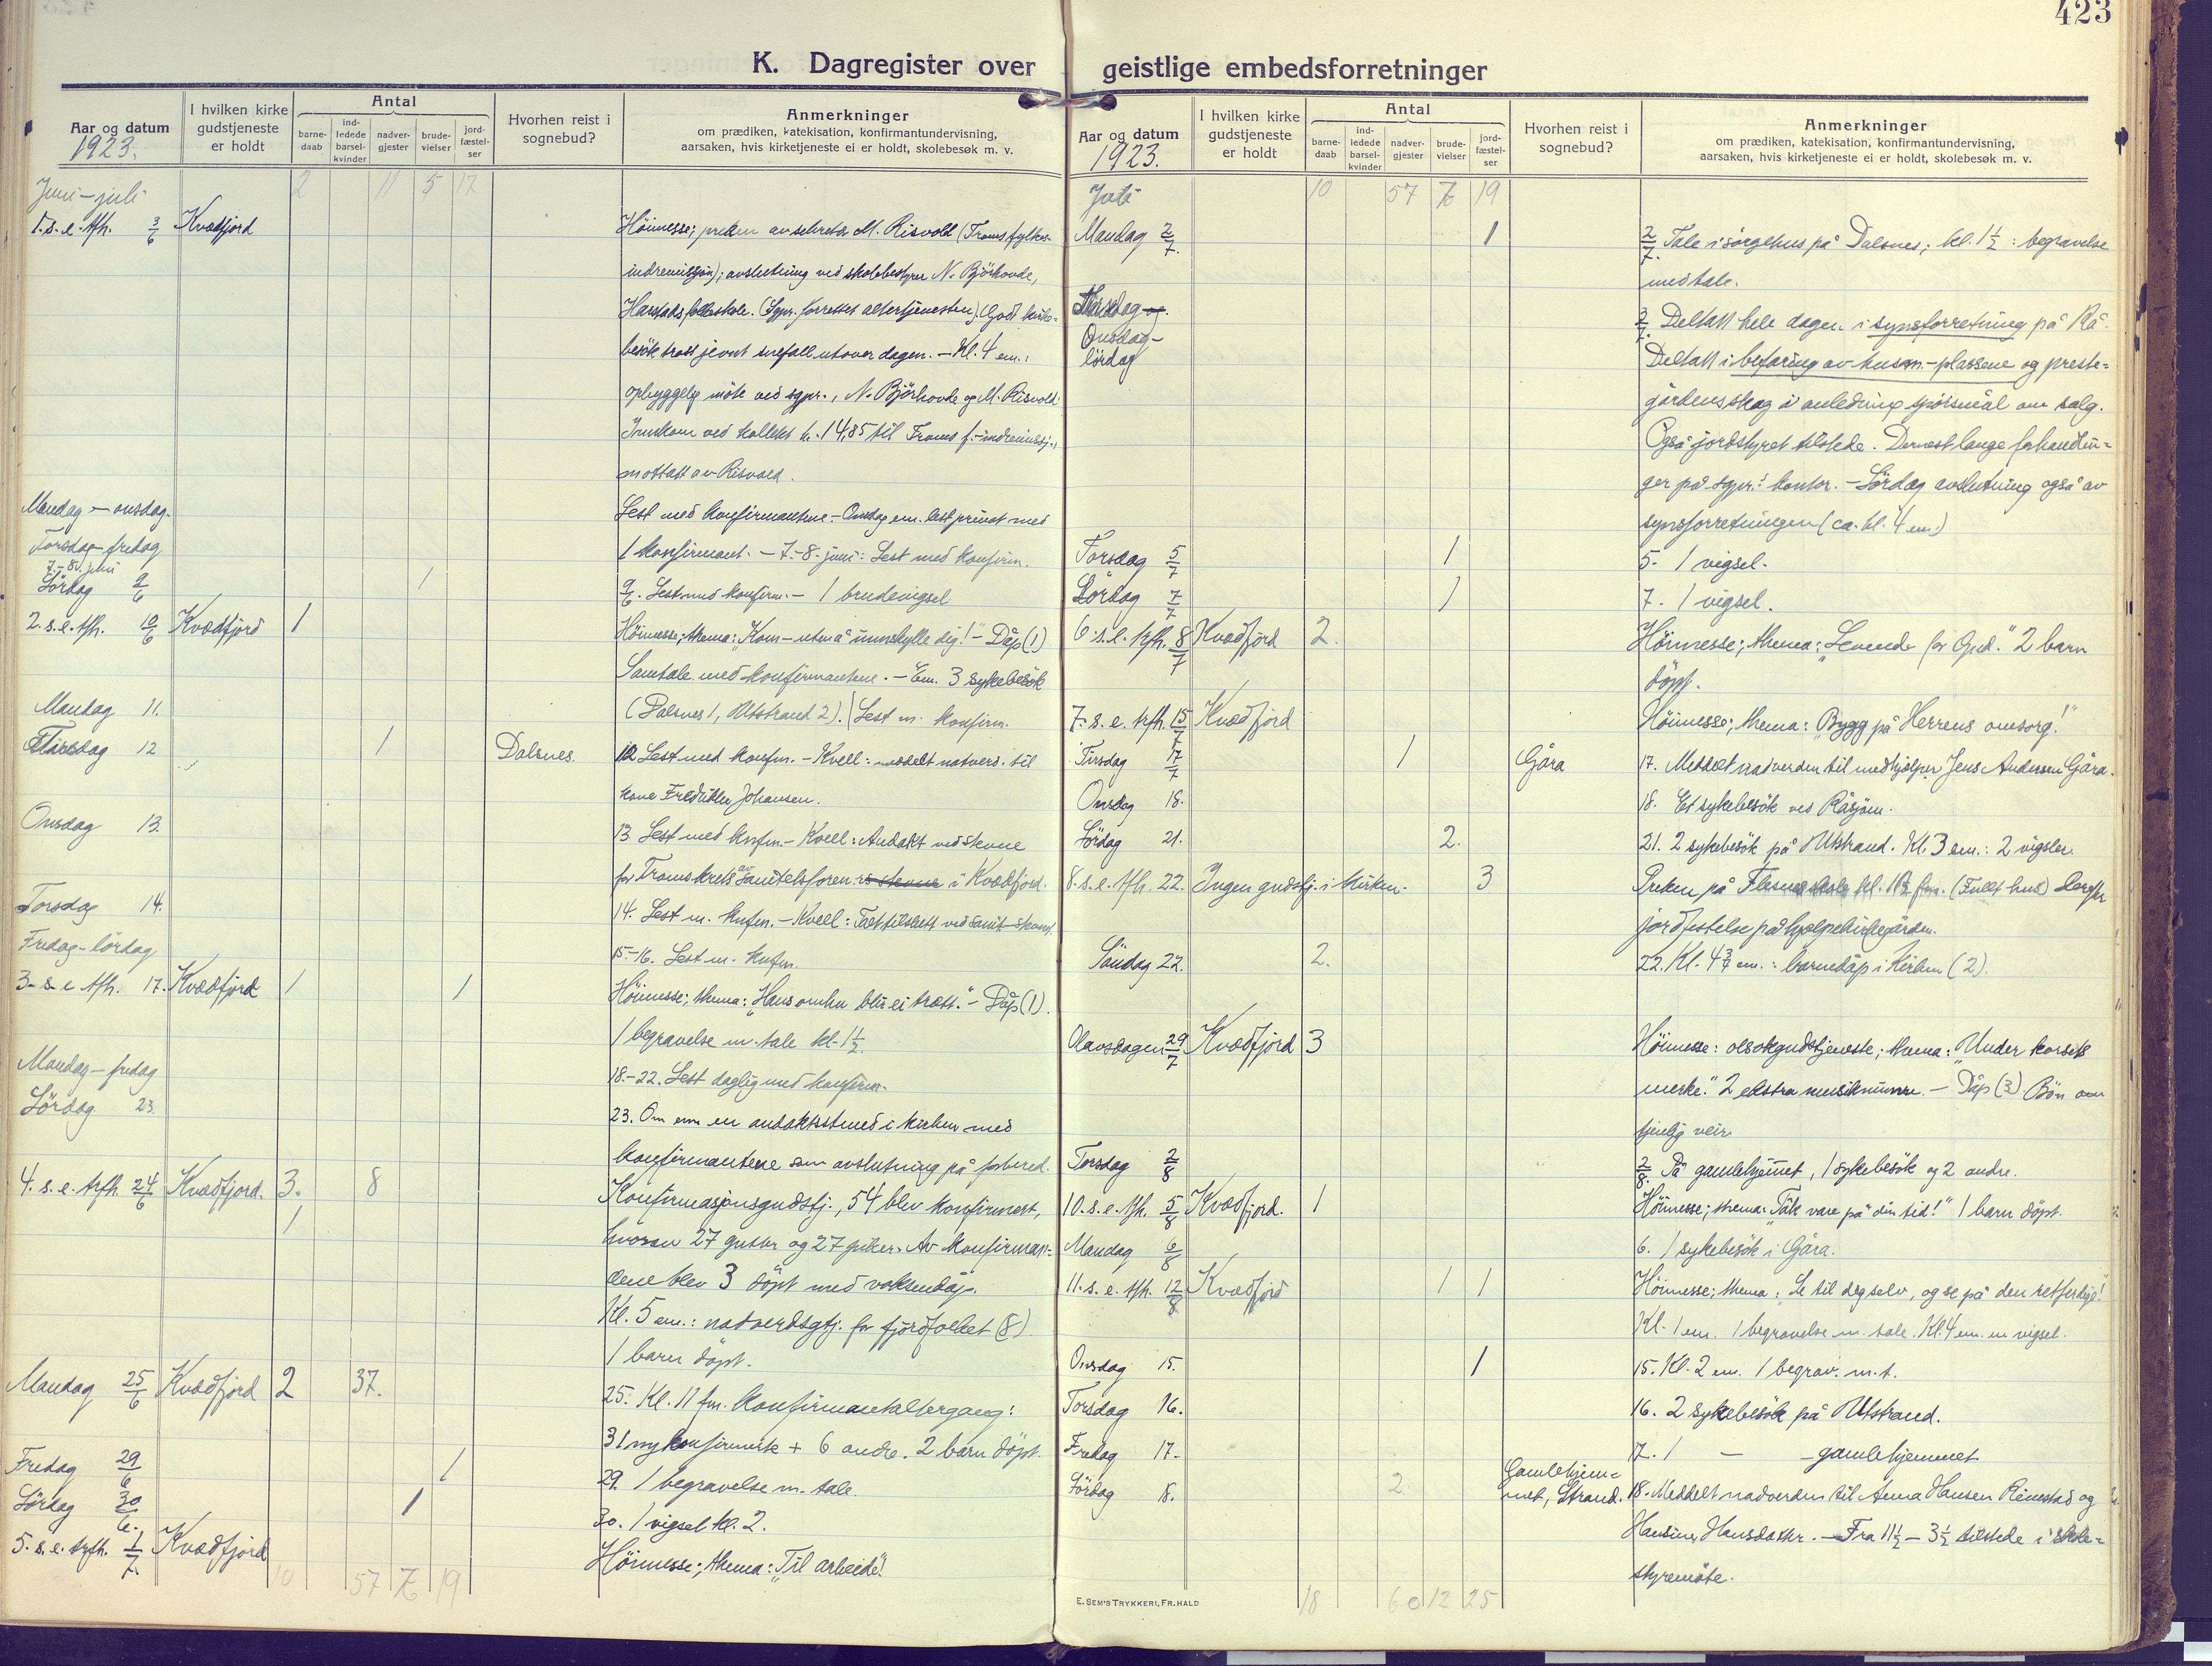 423
K. Dagregister over geistlige embedsforretninger
Aar og datum
1923.
I hvilken kirke gudstjeneste er holdt
Antal
barne-daab
ind-ledede barsel-kvinder
nadver-gjester
brude-vielser
jord-fæstel-ser
Hvorhen reist i sognebud?
Anmerkninger
om prædiken, katekisation, konfirmantundervisning,
aarsaken, hvis kirketjeneste ei er holdt, skolebesøk m. v.
Juni-juli 2 11 5 17
1. s. e. tfh. 3/6 Kvædfjord Höimesse; preken av sekretær M. Risvold (Troms fylkes-
indremisjon); avslutning ved skolebestyrer N. Björhovde,
Harstads folkeskole. (Sgpr. forrettet altertjenesten). Godt kirke-
besök trass jevnt snefall utover dagen. - Kl. 4 em.:
opbyggelig möte ved sgpr., N. Björhovde og M. Risvold
Innkom ved kollekt kr. 14,85 til Troms f.-indremissj.,
mottatt av Risvold.
Mandag - onsdag. Lest med konfirmantene. - Onsdag em. lest privat med
Torsdag-fredag 1 konfirmant. - 7.-8. juni: Lest med konfirm.
7.-8. juni
Lördag 9/6 1 9/6. Lest med konfirm. - 1 brudevigsel
2. s. e. tfh. 10/6 Kvædfjord 1 Höimesse; thema: "Kom - uten å unnskylle dig!" - Dåp (1)
Samtale med konfirmantene. - Em. 3 sykebesök
Mandag 11. (Dalsnes 1, Utstrand 2). Lest m. konfirm.
Tirsdag 12 1 Dalsnes. 12 Lest med konfm. - Kvell: meddelt nattverd. til
kone Fredrikke Johansen.
Onsdag 13. 13 Lest med konfm. - Kvell: Andakt ved stevne
for Troms krets av Sanitetsforen. i Kvædfjord.
Torsdag 14. 14. Lest m. konfm. - Kvell:
Fredag-lördag 15.-16. Lest m. konfm.
3. s. e. tfh. 17. Kvædfjord 1 1 Höimesse; thema: "Hans omhu blir ei trætt." - Dåp (1).
1 begravelse m. tale kl. 1 1/2.
Mandag - fredag 18.-22. Lest daglig med konfirm.
Lördag 23. 23. Om em en andaktsstund i kirken med
konfirmantene som avslutning på forbered.
4. s. e. trfh. 24/6 Kvædfjord. 3. 8 Konfirmasjonsgudstj., 54 blev konfirmert,
1 hvorav 27 gutter og 27 piker. Av konfirman-
dene blev 3 döpt med voksendåp.
Kl. 5 em.: nadverdsgtj. for fjordfolket (8)
1 barn döpt.
Mandag 25/6 Kvædfjord 2 37. 25. Kl. 11 fm. konfirmantaltergang:
31 nykonfirmerte + 6 andre. 2 barn döpt.
Fredag 29/6 1 29. 1 begravelse m. tale.
Lördag 30/6. 1 30. 1 vigsel kl. 2.
5. s. e. trfh. 1/7. Kvædfjord Höimesse; thema: "Til arbeide!"
10 57 7 19
Aar og datum
1923.
I hvilken kirke gudstjeneste er holdt
Antal
barne-daab
ind-ledede barsel-kvinder
nadver-gjester
brude-vielser
jord-fæstel-ser
Hvorhen reist i sognebud?
Anmerkninger
om prædiken, katekisation, konfirmantundervisning,
aarsaken, hvis kirketjeneste ei er holdt, skolebesøk m. v.
Juli 10 57 7 19
Mandag 2/7. 1 2/7. Tale i sörgehus på Dalsnes; kl. 1 1/2: begravelse
med tale.
Tirsdag 3/7. Deltatt hele dagen i synsforretning på Rå.
Onsdag- Deltatt i befaring av husm.-plassene og preste-
lördag gårdens skog i anledning spörsmål om salg.
Også jordstyret tilstede. Dernest lange forhandlin-
ger på sgpr.s kontor. - Lördag avslutning også av
synsforretningen (ca. kl. 4 em.)
Torsdag 5/7 1 5. 1 vigsel.
Lördag 7/7 1 7. 1 vigsel.
6. s. e. trfh. 8/7 Kvædfjord 2. Höimesse; thema: "Levende for Gud." 2 barn
döpt.
7. s. e. trfh. 15/7 Kvædfjord Höimesse; thema: "Bygg på Herrens omsorg!"
Tirsdag 17/7 1 Gåra 17. Meddelt nadverden til medhjelper Jens Andersen Gåra.
Onsdag 18. 18. Et sykebesök ved Råsjöen.
Lördag 21. 2. 21. 2 sykebesök på Utstrand. Kl. 3 em.: 2 vigsler.
8. s. e. tfh. 22. Ingen gudstj. i kirken. 3 Preken på Flesnes skole kl. 10 1/2 fm. (Fullt hus) derefter
jordfestelse på hjelpekirkegården.
Söndag 22. 2. 22. Kl. 4 3/4 em.: barnedåp i kirken (2).
Olavsdagen 29/7 Kvædfjord 3 Höimesse: olsokgudstjeneste; thema: "Under korsets
merke." 2 ekstra musiknumre. - Dåp (3) Bön om
tjenlig veir.
Torsdag 2/8 2/8. På gamlehjemmet, 1 sykebesök og 2 andre.
10. s. e. tfh. 5/8 Kvædfjord. 1 Höimesse; thema: "Tak vare på din tid!" 1 barn döpt.
Mandag 6/8 6. 1 sykebesök i Gåra.
11. s. e. tfh. 12/8 Kvædfjord 1 1 Höimesse; thema: "Se til deg selv, og se på den retferdige!"
Kl. 1 em. 1 begravelse m. tale. Kl. 4 em. en vigsel.
Onsdag 15. 1 15. Kl. 2 em. 1 begrav. m. t.
Torsdag 16. 16. 2 sykebesök på Utstrand.
Fredag 17. 17. 1 - - gamlehjemmet
Lördag 18. 2. Gamlehjem-
met, Strand. 18. Meddelt nadverden til Anna Hansen Renestad og
Hansine Hansdatter. - Fra 11 1/2 - 3 1/2 tilstede i skole-
styremöte.
18 60 12 25
E. SEM'S TRYKKERI, FR.HALD